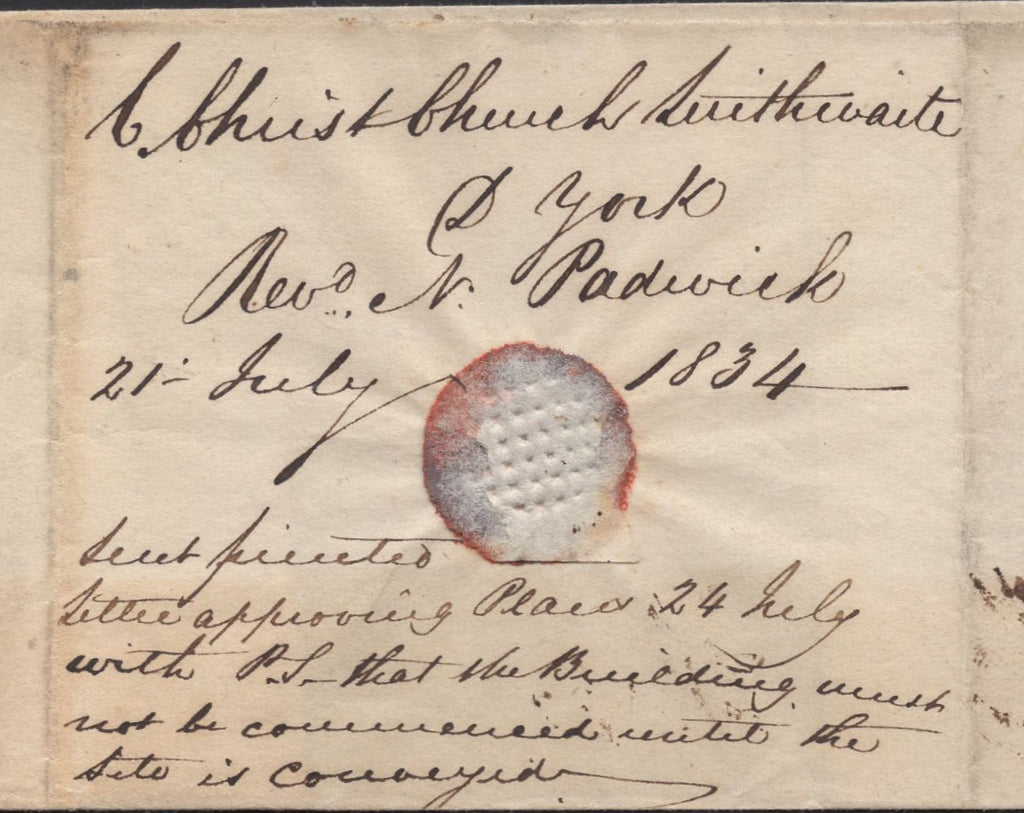 C. Christ Church Linthwaite
D York
Revd. N. Padwick
21 - July 1834
sent printed
letter approving Plans 24 July
with P.S. that the Building must
not be commenced until the
site is conveyed